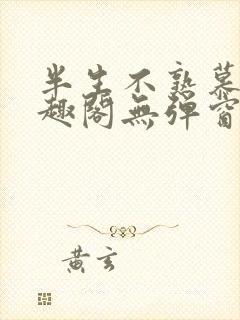 半生不熟慕
趣阁無弹窗
黄玄